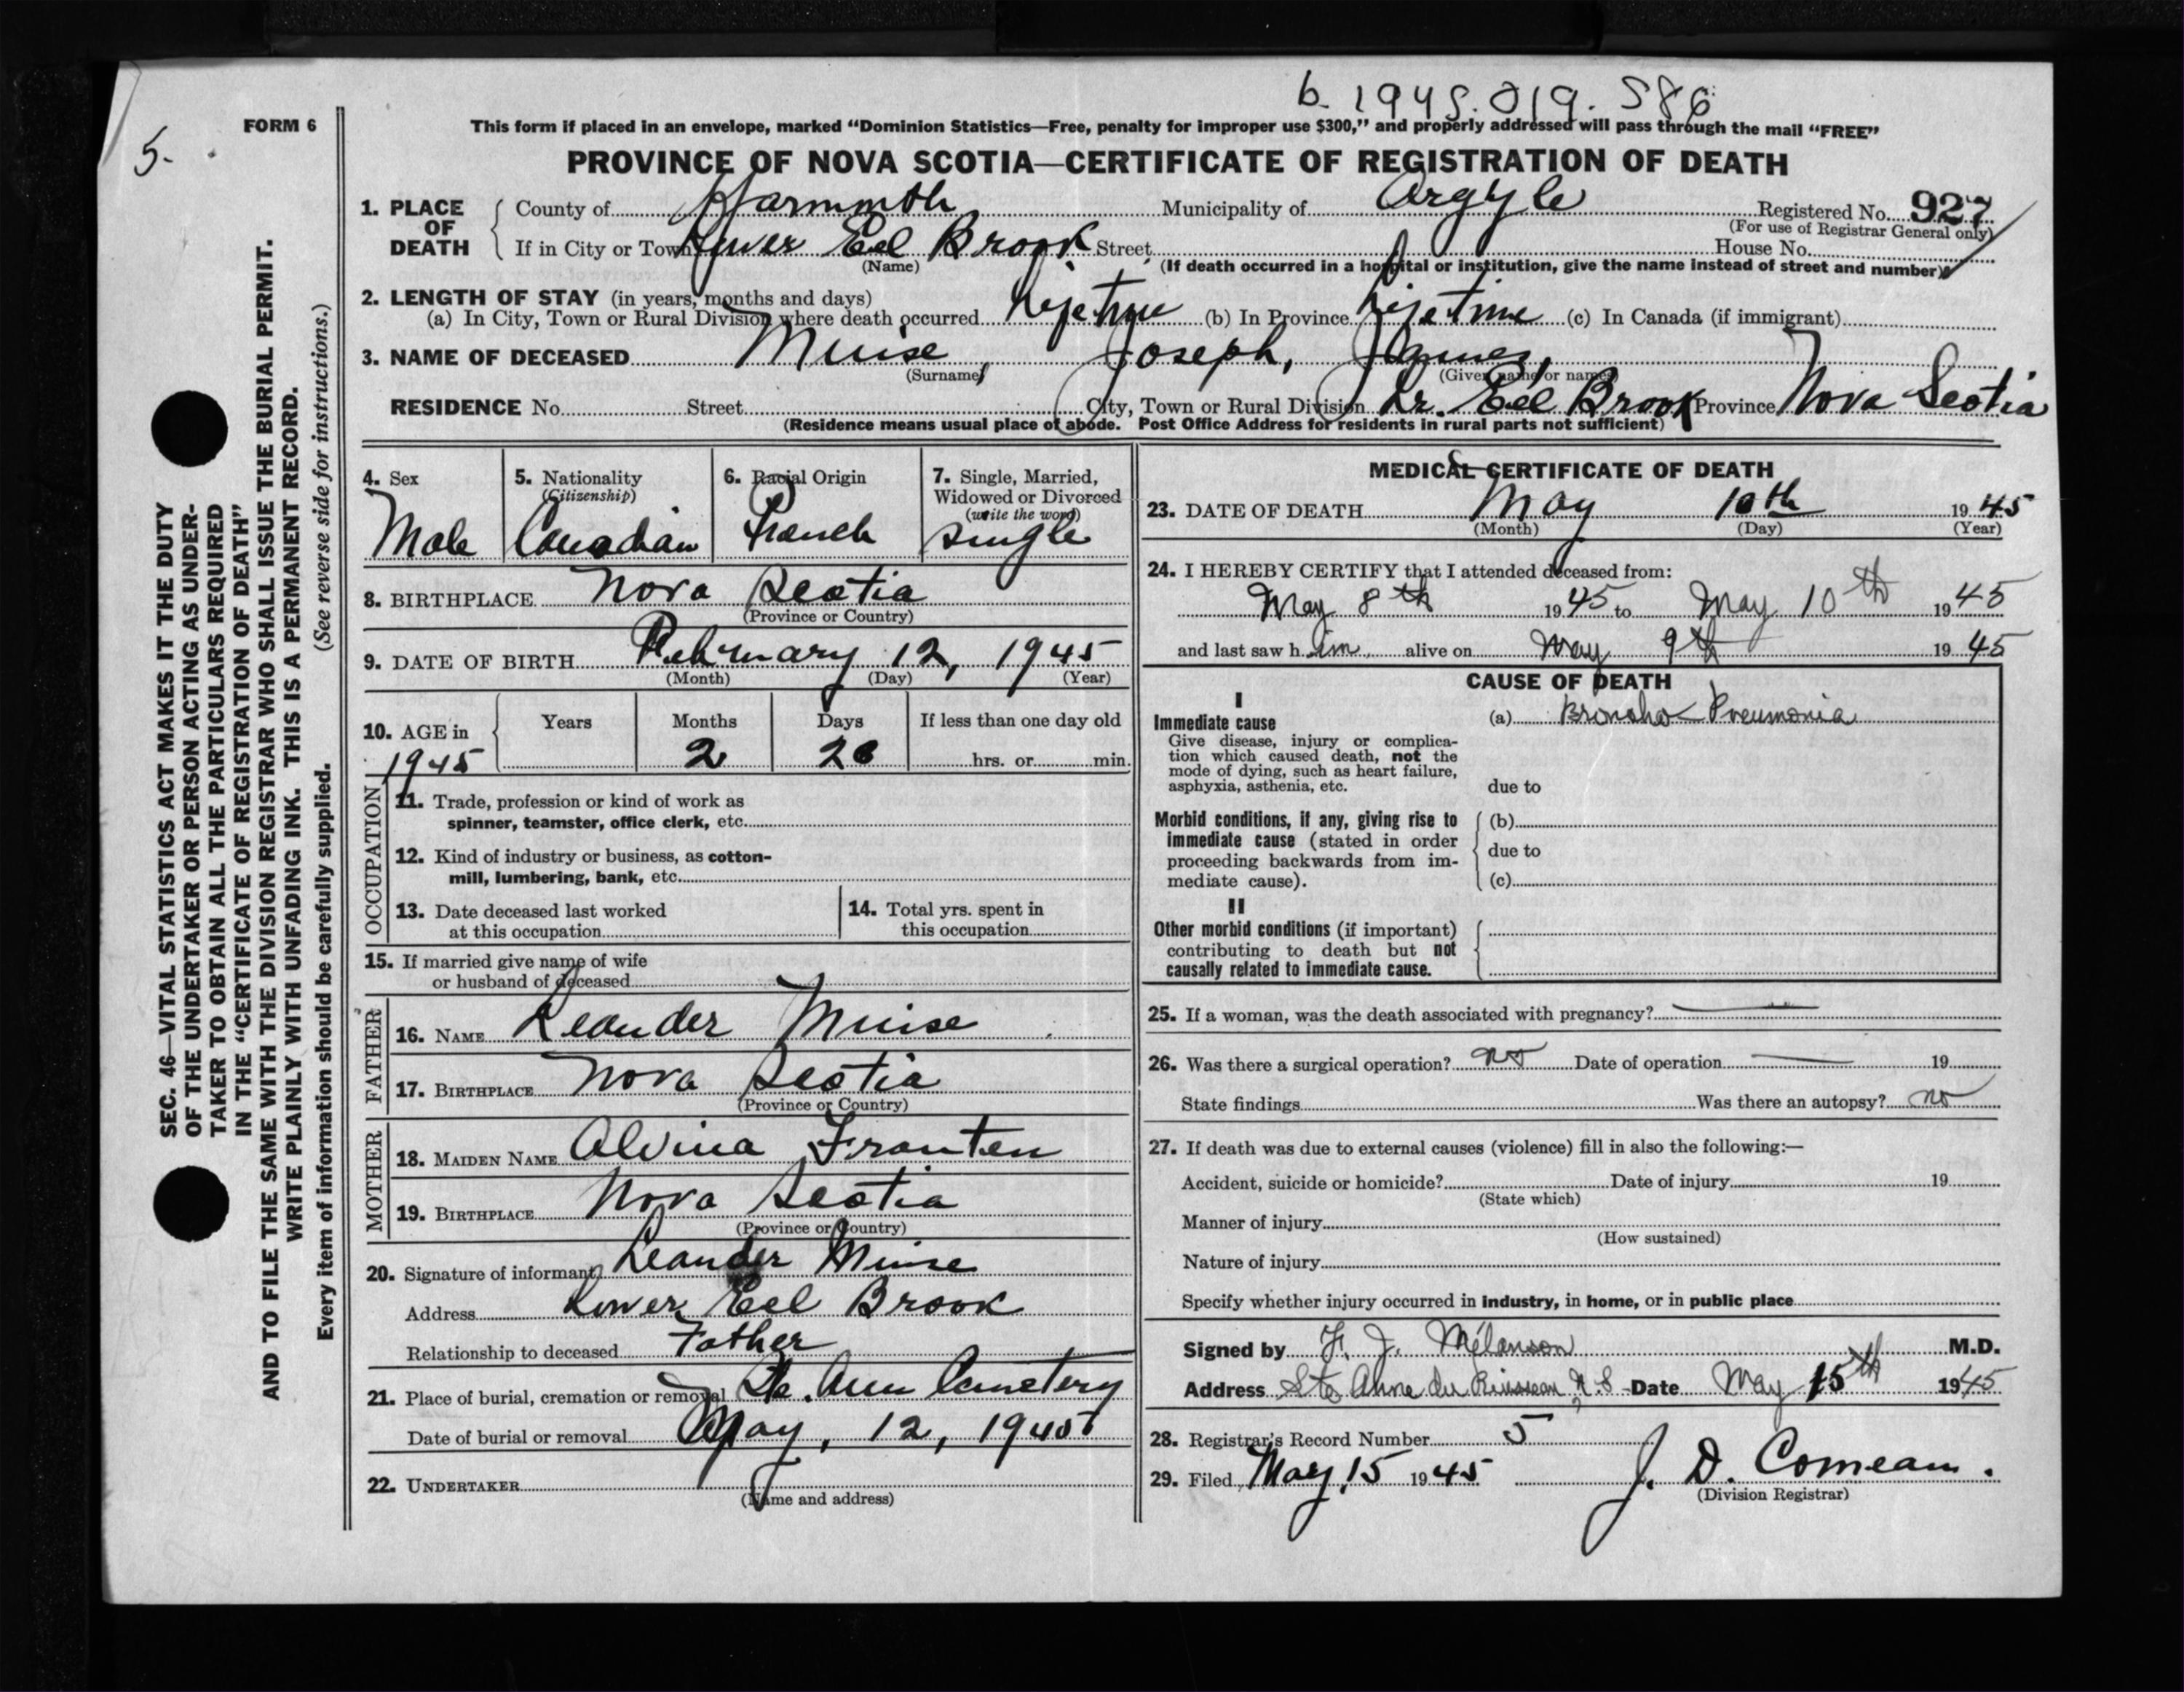 b. 1945.019.586
5.
FORM 6
This form if placed in an envelope, marked "Dominion Statistics—Free, penalty for improper use $300," and properly addressed will pass through the mail "FREE"
PROVINCE OF NOVA SCOTIA—CERTIFICATE OF REGISTRATION OF DEATH
SEC. 46—VITAL STATISTICS ACT MAKES IT THE DUTY
OF THE UNDERTAKER OR PERSON ACTING AS UNDER-
TAKER TO OBTAIN ALL THE PARTICULARS REQUIRED
IN THE "CERTIFICATE OF REGISTRATION OF DEATH"
AND TO FILE THE SAME WITH THE DIVISION REGISTRAR WHO SHALL ISSUE THE BURIAL PERMIT.
WRITE PLAINLY WITH UNFADING INK. THIS IS A PERMANENT RECORD.
Every item of information should be carefully supplied. (See reverse side for instructions.)
1. PLACE OF DEATH County of Yarmouth Municipality of Argyle Registered No. 927
(For use of Registrar General only)
If in City or Town Lower Eel Brook Street House No.
(Name) (If death occurred in a hospital or institution, give the name instead of street and number)
2. LENGTH OF STAY (in years, months and days)
(a) In City, Town or Rural Division where death occurred Lifetime (b) In Province Lifetime (c) In Canada (if immigrant)
3. NAME OF DECEASED Muise, Joseph, James,
(Surname) (Given name or names)
RESIDENCE No. Street City, Town or Rural Division Lr. Eel Brook Province Nova Scotia
(Residence means usual place of abode. Post Office Address for residents in rural parts not sufficient)
4. Sex
Male
5. Nationality
(Citizenship)
Canadian
6. Racial Origin
French
7. Single, Married,
Widowed or Divorced
(write the word)
Single
8. BIRTHPLACE Nova Scotia
(Province or Country)
9. DATE OF BIRTH February 12, 1945
(Month) (Day) (Year)
10. AGE in 1945
Years Months Days If less than one day old
2 28 hrs. or min.
OCCUPATION
11. Trade, profession or kind of work as
spinner, teamster, office clerk, etc.
12. Kind of industry or business, as cotton-
mill, lumbering, bank, etc.
13. Date deceased last worked
at this occupation
14. Total yrs. spent in
this occupation
15. If married give name of wife
or husband of deceased
FATHER
16. NAME Leander Muise
17. BIRTHPLACE Nova Scotia
(Province or Country)
MOTHER
18. MAIDEN NAME Alvina Fronten
19. BIRTHPLACE Nova Scotia
(Province or Country)
20. Signature of informant Leander Muise
Address Lower Eel Brook
Relationship to deceased Father
21. Place of burial, cremation or removal Ste. Ann Cemetery
Date of burial or removal May, 12, 1945
22. UNDERTAKER
(Name and address)
MEDICAL CERTIFICATE OF DEATH
23. DATE OF DEATH May 10th 1945
(Month) (Day) (Year)
24. I HEREBY CERTIFY that I attended deceased from:
May 8th 1945 to May 10th 1945
and last saw him alive on May 9th 1945
CAUSE OF DEATH
I
Immediate cause
Give disease, injury or complica-
tion which caused death, not the
mode of dying, such as heart failure,
asphyxia, asthenia, etc.
(a) Broncho-Pneumonia
due to
Morbid conditions, if any, giving rise to
immediate cause (stated in order
proceeding backwards from im-
mediate cause).
(b)
due to
(c)
II
Other morbid conditions (if important)
contributing to death but not
causally related to immediate cause.
25. If a woman, was the death associated with pregnancy? —
26. Was there a surgical operation? no Date of operation — 19
State findings Was there an autopsy? no
27. If death was due to external causes (violence) fill in also the following:—
Accident, suicide or homicide? Date of injury 19
(State which)
Manner of injury
(How sustained)
Nature of injury
Specify whether injury occurred in industry, in home, or in public place
Signed by F. J. Mélanson M.D.
Address Ste Anne du Ruisseau, N.S - Date May 15th 1945
28. Registrar's Record Number 5
29. Filed May, 15 1945 J. D. Comeau.
(Division Registrar)